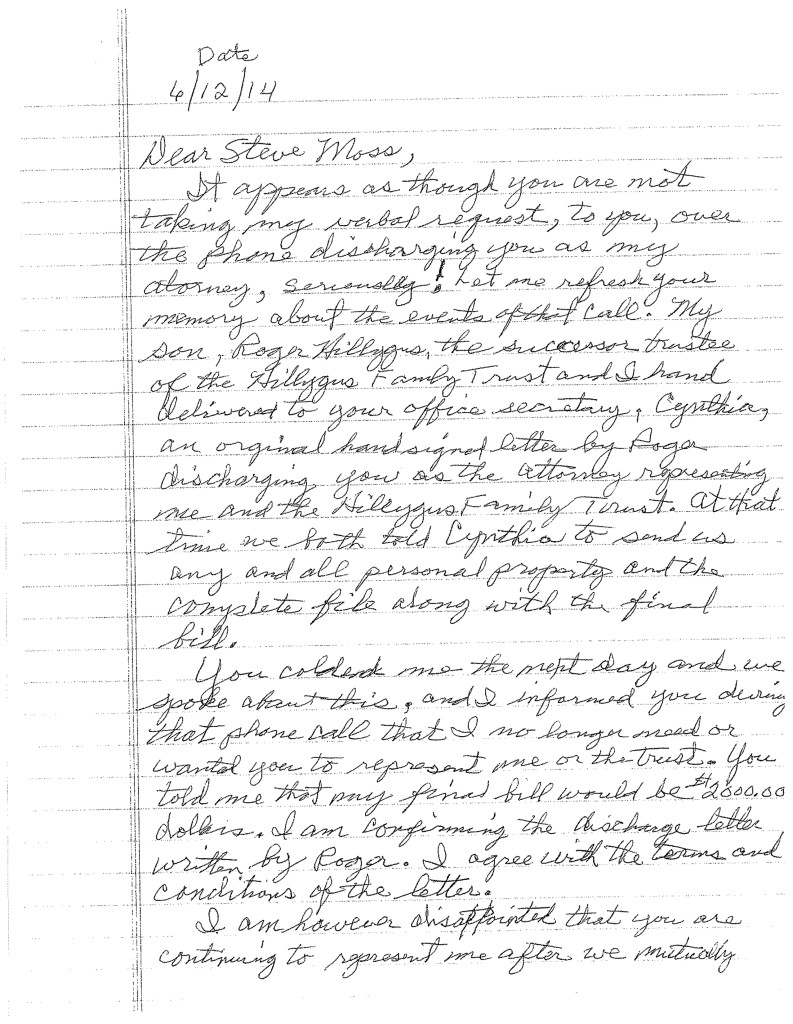 Date
6/12/14
Dear Steve Moss,
It appears as though you are not
taking my verbal request, to you, over
the phone discharging you as my
atorney, seriously! Let me refresh your
memory about the events of that call. My
son, Roger Hillygus, the successor trustee
of the Hillygus Family Trust and I hand
delivered to your office secretary, Cynthia,
an orginal hand signed letter by Roger
discharging you as the attorney representing
me and the Hillygus Family Trust. At that
time we both told Cynthia to send us
any and all personal property and the
complete file along with the final
bill.
You me the next day and we
spoke about this, and I informed you during
that phone call that I no longer need or
wanted you to represent me or the trust. You
told me that my final bill would be $2000.00
dollars. I am confirming the discharge letter
written by Roger. I agree with the terms and
conditions of the letter.
I am however disappointed that you are
continuing to represent me after we mutually